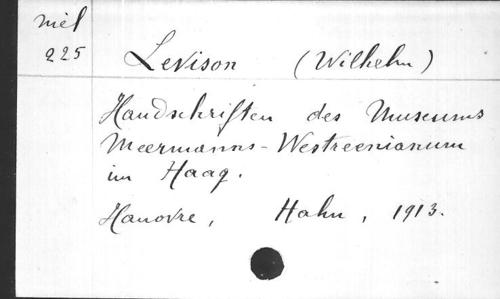 niel
225
Levison (Wilhelm)
Handschriften des Museums
Meermanns-Westreenianum
im Haag.
Hanovre, Hahn, 1913.